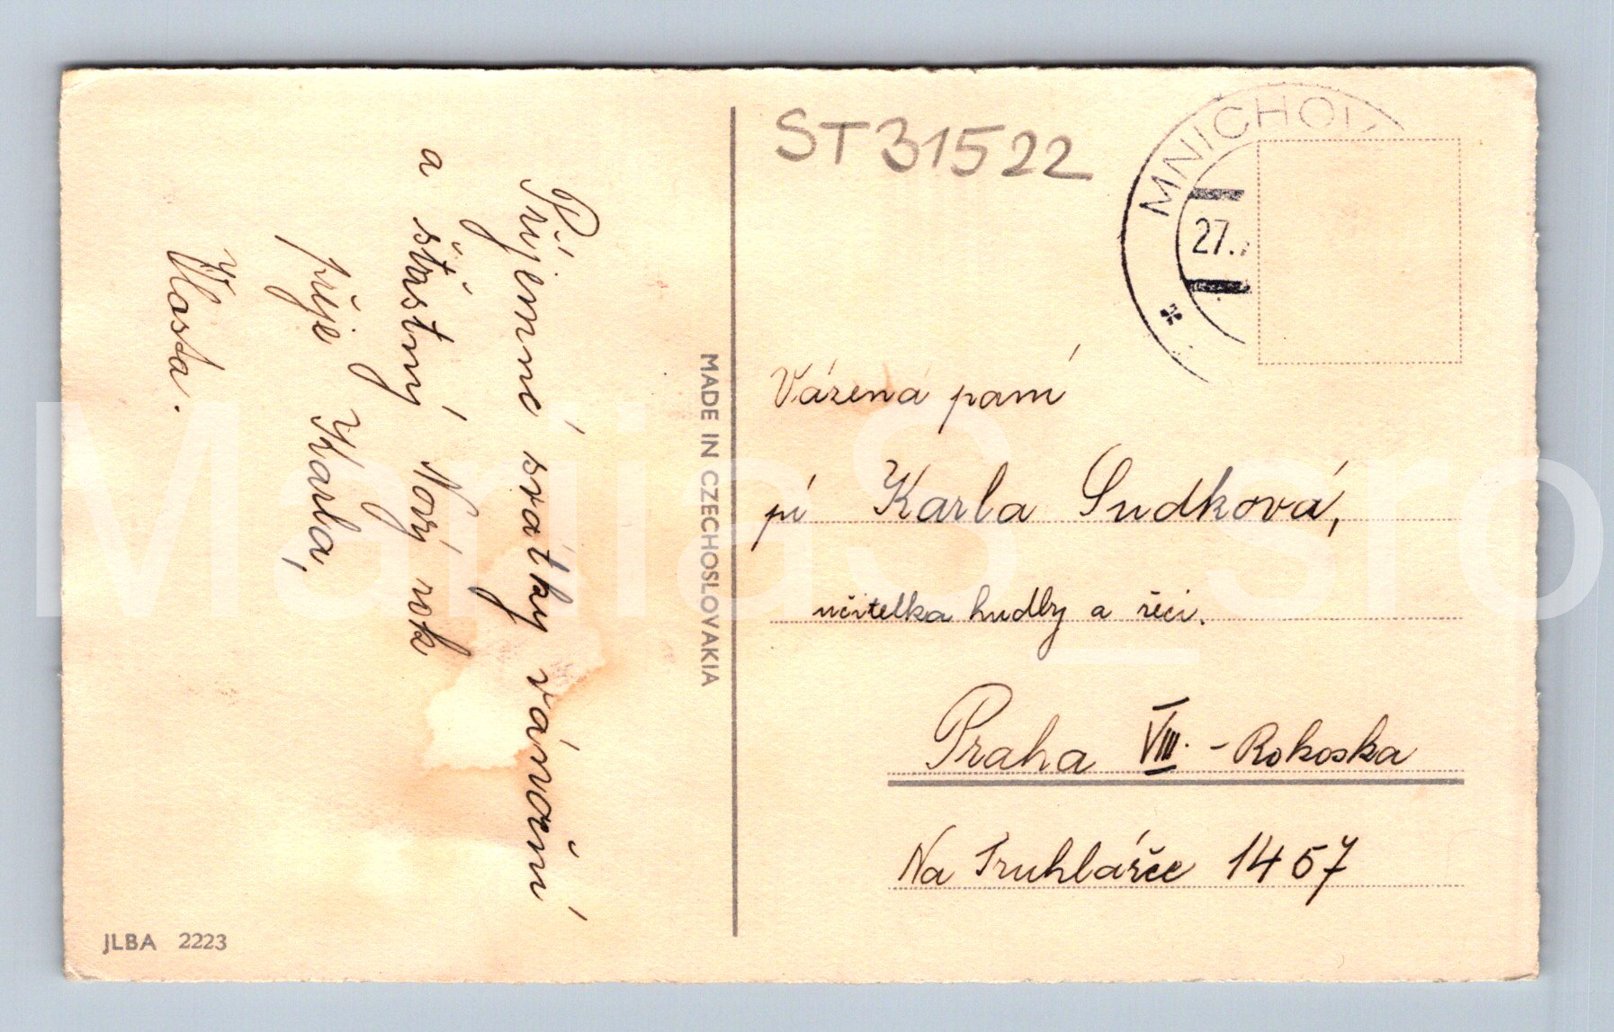 Příjemné svátky vánoční
a šťastný Nový rok
přeje Karla,
Vlasta.
JLBA 2223
MADE IN CZECHOSLOVAKIA
ST31522
MNICHOV
27.
Vážená paní
pí Karla Sudková,
učitelka hudby a řeči.
Praha VIII. - Rokoska
Na Truhlářce 1457
ManiaS_sro